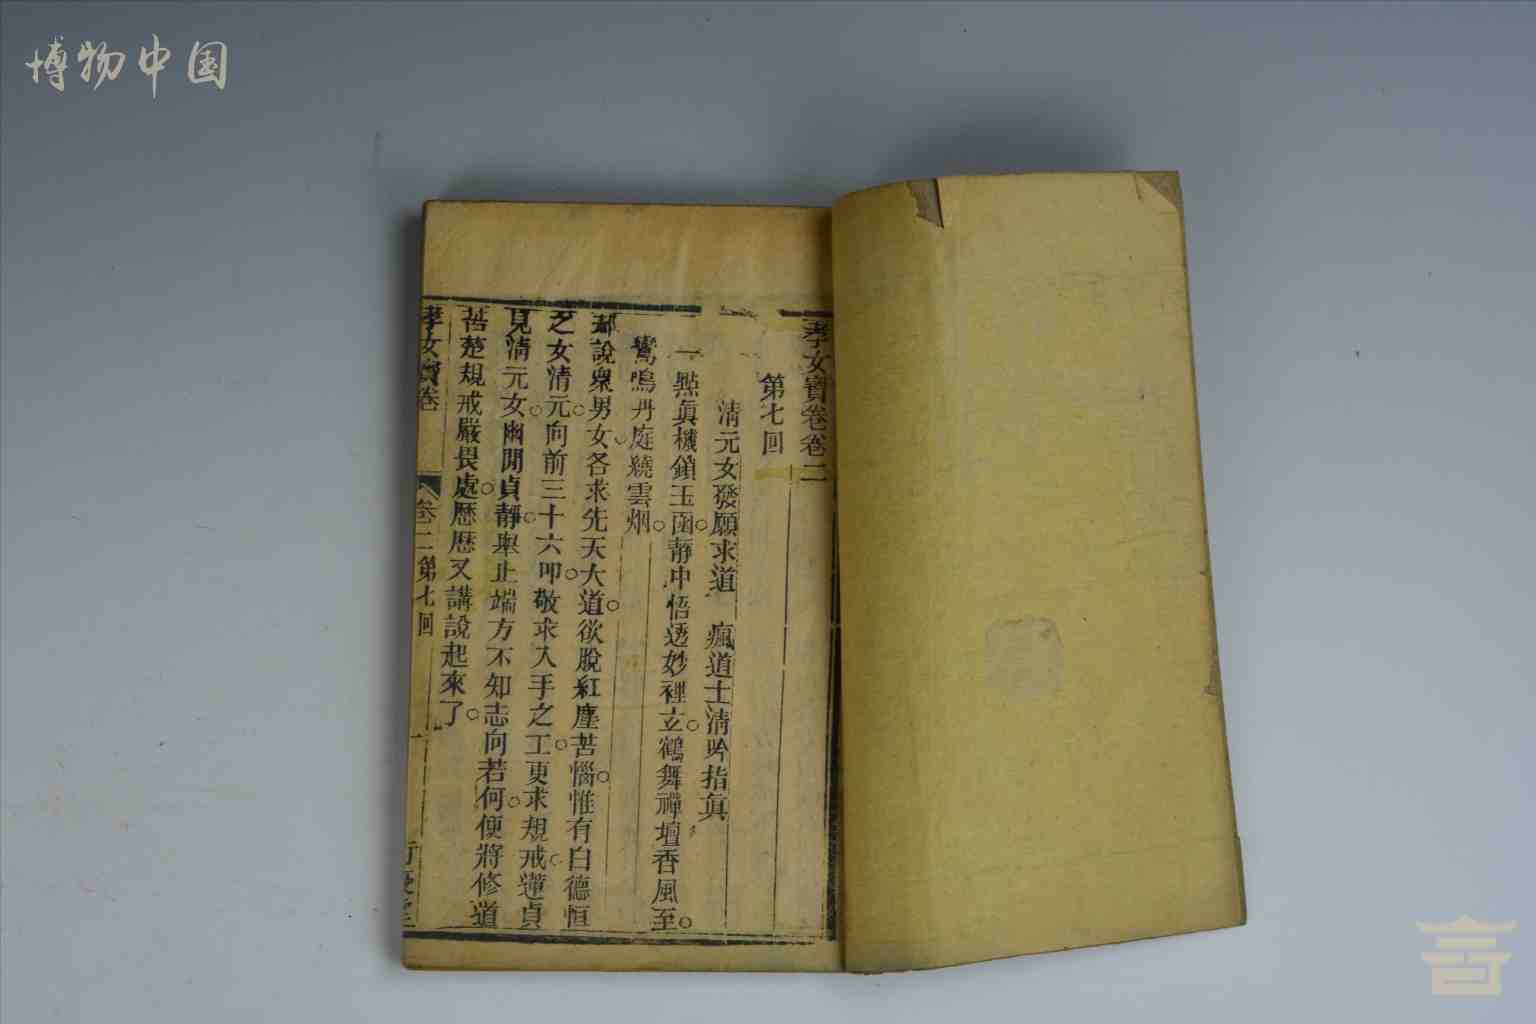 博物中国
孝女寶卷卷二
第七回
清元女發願求道　瘋道士清吟指眞
一點眞機鎖玉函○靜中悟透妙裡立○鶴舞禪壇香風至○
鸞鳴丹庭繞雲烟○
却說衆男女各求先天大道○欲脫紅塵苦惱○惟有白德恒
之女淸元○向前三十六叩○敬求入手之工○更求規戒○蓮貞
見淸元女○幽閒貞靜○舉止端方不知志向若何○便將修道
苦楚規戒嚴畏處○歷歷又講說起來了○
孝女寶卷
卷二第七回
一